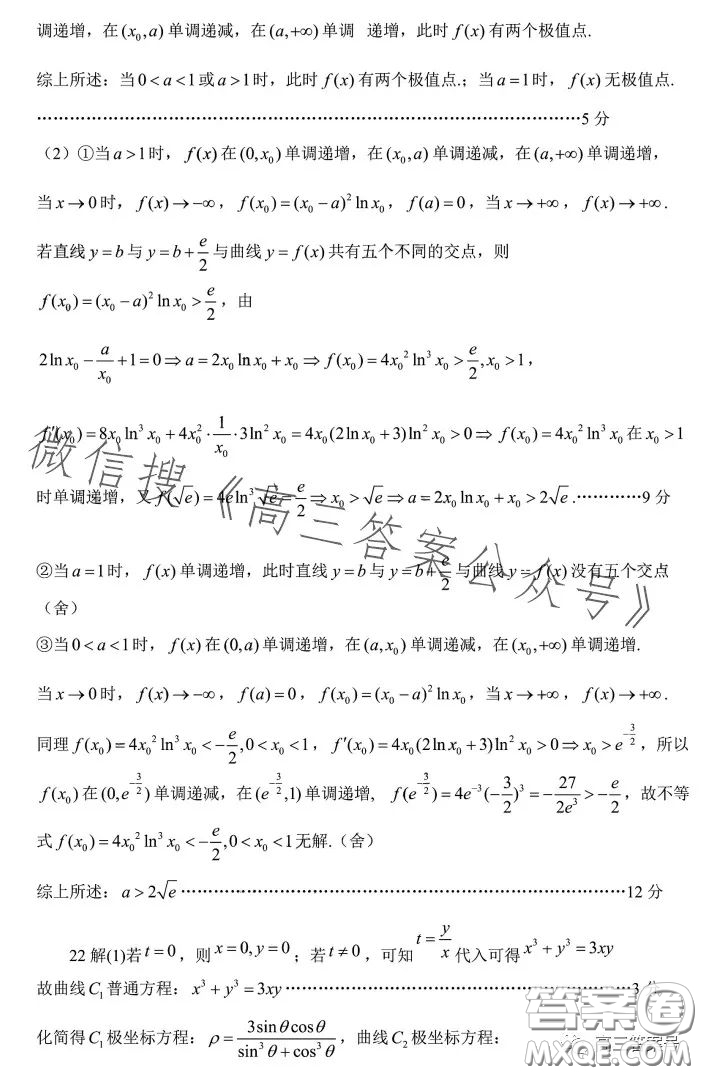 调递增，在(x₀,a)单调递减，在(a,+∞)单调 递增，此时f(x)有两个极值点.
综上所述：当0<a<1或a>1时，此时f(x)有两个极值点.；当a=1时，f(x)无极值点.
……………………………………………………………………………………5 分
（2）①当a>1时，f(x)在(0,x₀)单调递增，在(x₀,a)单调递减，在(a,+∞)单调递增，
当x→0时，f(x)→-∞，f(x₀)=(x₀-a)²ln x₀，f(a)=0，当x→+∞，f(x)→+∞.
若直线y=b与y=b+e/2与曲线y=f(x)共有五个不同的交点，则
f(x₀)=(x₀-a)²ln x₀>e/2，由
2ln x₀-a/x₀+1=0⇒a=2x₀ln x₀+x₀⇒f(x₀)=4x₀²ln³x₀>e/2,x₀>1，
f'(x₀)=8x₀ln³x₀+4x₀²·1/x₀·3ln²x₀=4x₀(2ln x₀+3)ln²x₀>0⇒f(x₀)=4x₀²ln³x₀在x₀>1
时单调递增，又f(√e)=4eln³√e=e/2⇒x₀>√e⇒a=2x₀ln x₀+x₀>2√e.…………9 分
②当a=1时，f(x)单调递增，此时直线y=b与y=b+e/2与曲线y=f(x)没有五个交点
（舍）
③当0<a<1时，f(x)在(0,a)单调递增，在(a,x₀)单调递减，在(x₀,+∞)单调递增.
当x→0时，f(x)→-∞，f(a)=0，f(x₀)=(x₀-a)²ln x₀，当x→+∞，f(x)→+∞.
同理f(x₀)=4x₀²ln³x₀<-e/2,0<x₀<1，f'(x₀)=4x₀(2ln x₀+3)ln²x₀>0⇒x₀>e^(-3/2)，所以
f(x₀)在(0,e^(-3/2))单调递减，在(e^(-3/2),1)单调递增，f(e^(-3/2))=4e⁻³(-3/2)³=-27/(2e³)>-e/2，故不等
式f(x₀)=4x₀²ln³x₀<-e/2,0<x₀<1无解.（舍）
综上所述：a>2√e……………………………………………………………………12 分
22 解(1)若t=0，则x=0,y=0；若t≠0，可知t=y/x代入可得x³+y³=3xy
故曲线C₁普通方程：x³+y³=3xy……………………………………………………3 分
化简得C₁极坐标方程：ρ=3sinθcosθ/(sin³θ+cos³θ)，曲线C₂极坐标方程：
微信搜《高三答案公众号》
答案圈
高三答案号
MXQE.COM